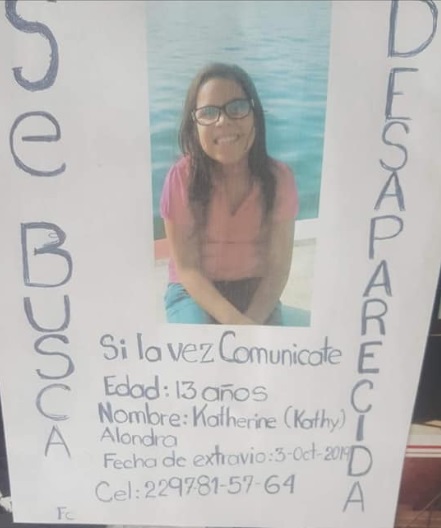 Se BUSCA
DESAPARECIDA
Si la vez Comunicate
Edad: 13 años
Nombre: Katherine (Kathy)
Alondra
Fecha de extravio: 3-Oct-2019
Cel: 229781-57-64